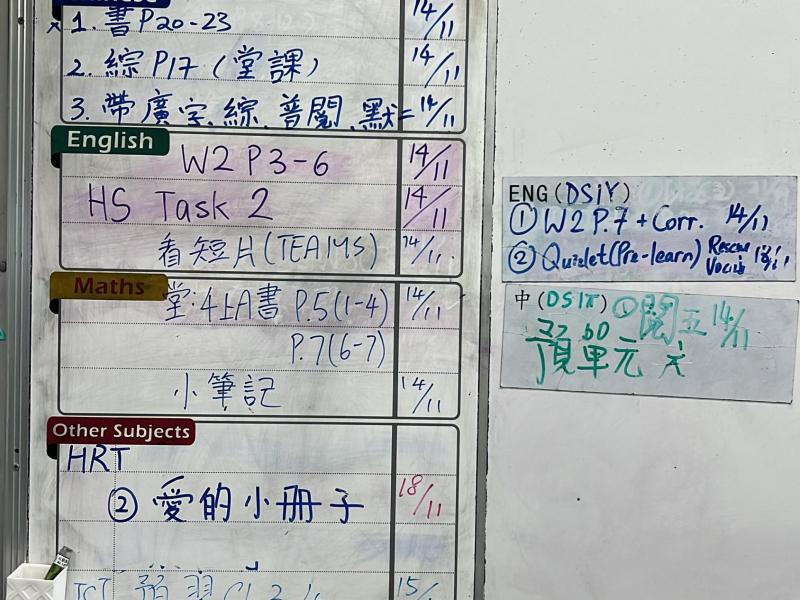 1. 書P20-23 14/11
2. 綜P17(堂課) 14/11
3. 帶廣字,綜,普閱,默= 14/11
English
W2 P3-6 14/11
HS Task 2 14/11
看短片(TEAMS) 14/11
Maths
堂:4上A書 P.5(1-4) 14/11
P.7(6-7)
小筆記 14/11
Other Subjects
HRT
② 愛的小冊子 18/11
預習 15/
ENG (DSIY)
① W2 P.7 + Corr. 14/11
② Quizlet(Pre-learn) Rescue
中(DSIT) ①閱五 14/11
單元